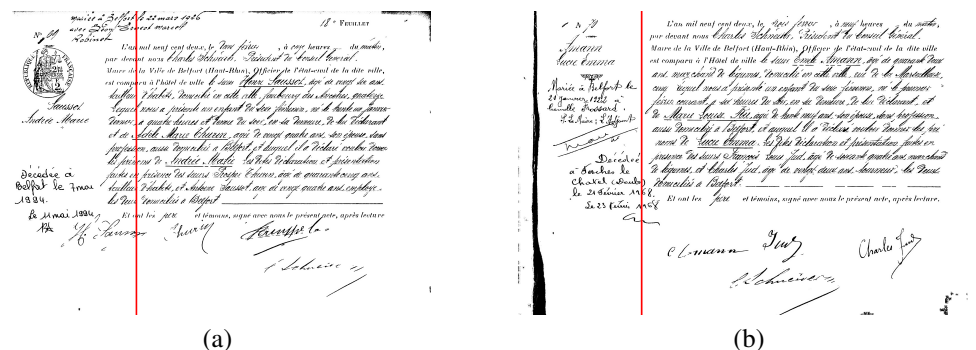 mariée à Belfort le 22 mars 1926
avec Léon Ernest Marcel
Robinet
18e FEUILLET
N° 69
L'an mil neuf cent deux, le deux février, à onze heures du matin,
par devant nous Charles Schneider, Président du Conseil Général,
Maire de la Ville de Belfort (Haut-Rhin), Officier de l'état-civil de la dite ville,
est comparu à l'hôtel de ville le sieur Henri Saussol, âgé de vingt six ans,
tailleur d'habits, domicilié en cette ville, faubourg des Ancêtres,
lequel nous a présenté un enfant du sexe féminin, né le trente un janvier
dernier, à quatre heures et demie du soir, en sa demeure, de lui déclarant
et de Adèle Marie, âgée de vingt quatre ans, son épouse, sans
profession, aussi domiciliée à Belfort, et auquel il a déclaré vouloir donner
les prénoms de Andrée Marie. Les dites déclaration et présentation
faites en présence des sieurs Joseph, âgé de quarante cinq ans,
tailleur d'habits, et Antoine Saussol, âgé de vingt quatre ans, employé,
les deux domiciliés à Belfort
Et ont les père et témoins, signé avec nous le présent acte, après lecture
Saussol
Andrée Marie
Décédée à
Belfort le 7 mai
1994.
Le 11 mai 1994
H. Saussol
C. Schneider
(a)
N° 70
Amann
Lucie Emma
Mariée à Belfort le
21 janvier 1922 à
Camille Dossard.
Décédée
à
Chatel (Doubs)
le 21 février 1968.
Le 23 février 1968
L'an mil neuf cent deux, le trois février, à neuf heures du matin,
par devant nous Charles Schneider, Président du Conseil Général,
Maire de la Ville de Belfort (Haut-Rhin), Officier de l'état-civil de la dite ville,
est comparu à l'Hôtel de ville le sieur Emile Amann, âgé de quarante deux
ans, marchand de légumes, domicilié en cette ville, rue de la
cinq, lequel nous a présenté un enfant du sexe féminin, né le premier
février courant, à six heures du soir, en sa demeure, de lui déclarant, et
de Marie Louise, âgée de trente neuf ans, son épouse, sans profession,
aussi domiciliée à Belfort, et auquel il a déclaré vouloir donner les pré
noms de Lucie Emma. Les dites déclaration et présentation faites en
présence des sieurs François Louis Jud, âgé de soixante quatre ans, marchand
de légumes, et Charles Jud, âgé de vingt deux ans, les deux
domiciliés à Belfort.
Et ont les père et témoins, signé avec nous le présent acte, après lecture.
E Amann Jud
Charles Jud
C. Schneider
(b)